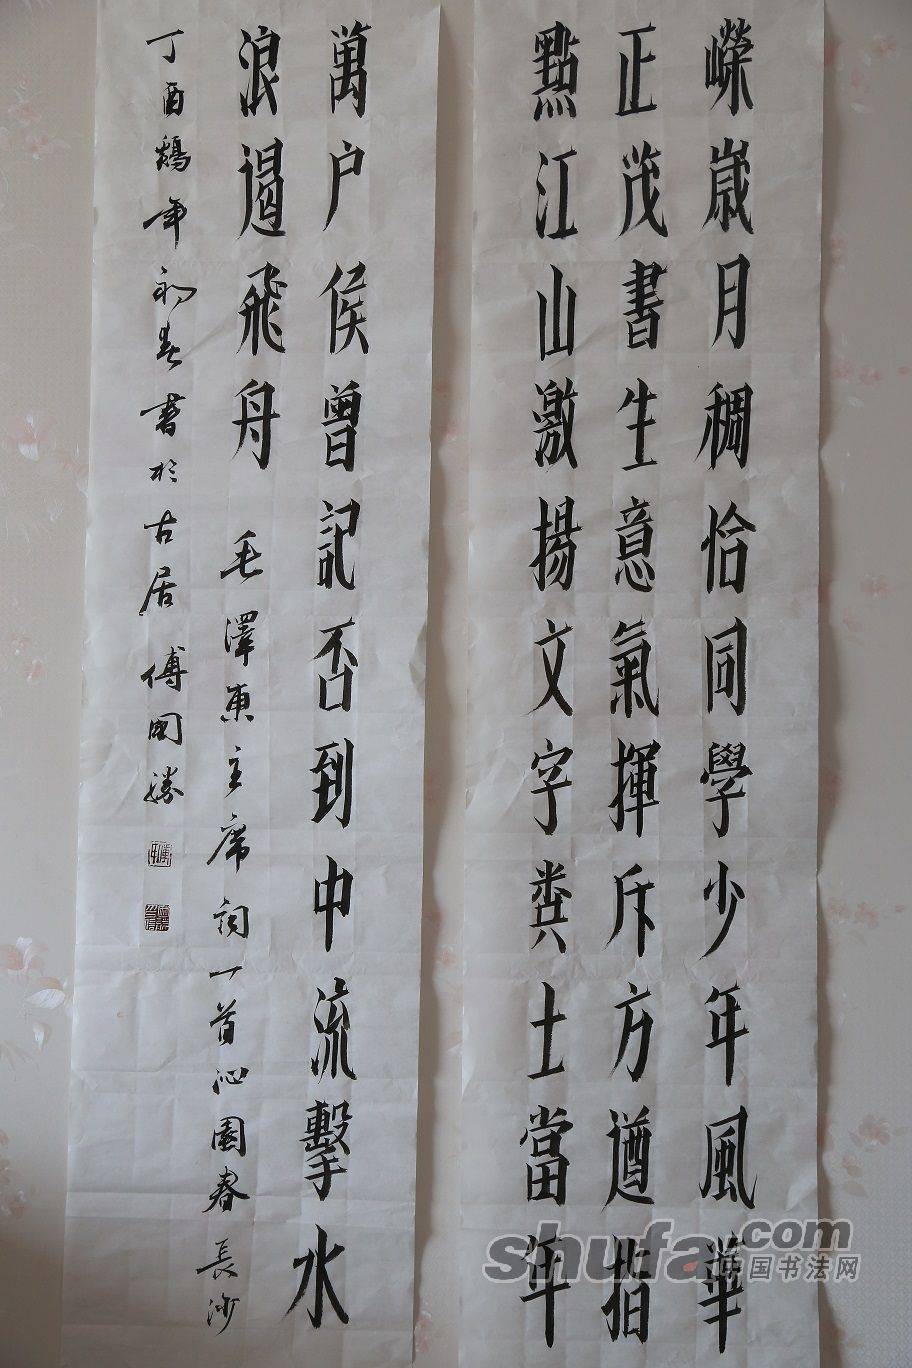 嶸歲月稠恰同學少年風華
正茂書生意氣揮斥方遒指
點江山激揚文字糞土當年
萬户侯曾記否到中流擊水
浪遏飛舟 毛澤東主席詞一首沁園春長沙
丁酉鷄年初春書於古居傅國勝
shufa.com
中国书法网